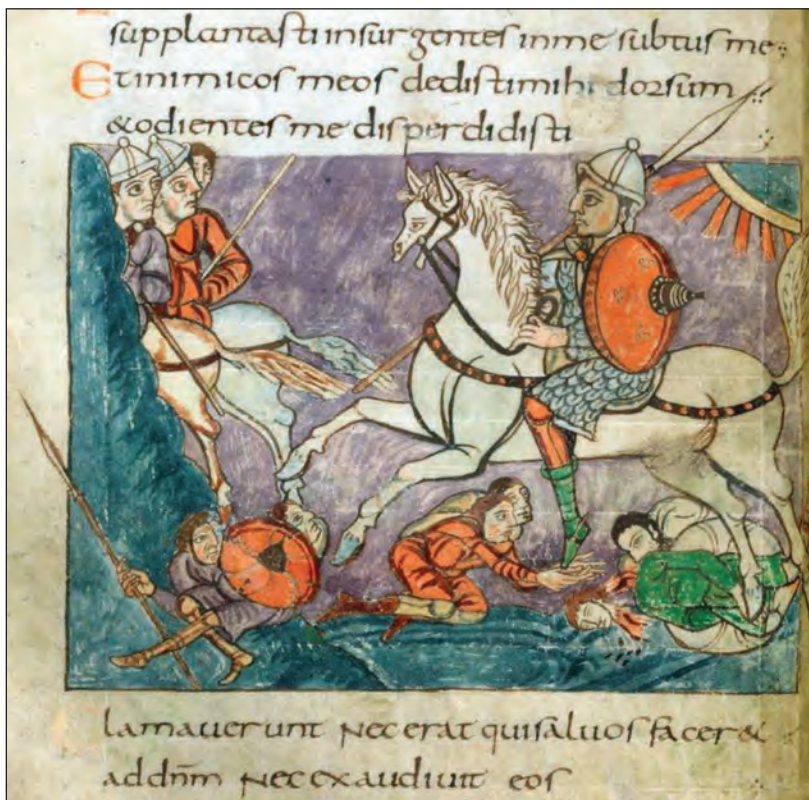 supplantasti insurgentes in me subtus me
Et inimicos meos dedisti mihi dorsum
& odientes me disperdidisti
Clamaverunt nec erat qui salvos facer&
ad dñm nec exaudivit eos